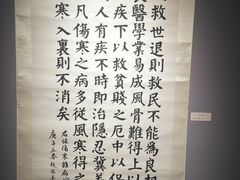 救世退則救民不能為良相
醫學業易成風骨難得上以
疾下以救貧賤之厄中以保
人有疾不時即治隱忍冀差
凡傷寒之病多從風寒得之
寒入裏則不消矣
右錄傷寒雜病
庚子立春